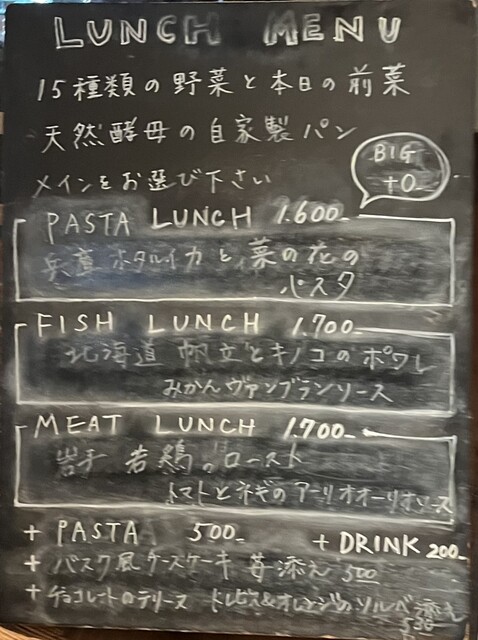 LUNCH MENU
15種類の野菜と本日の前菜
天然酵母の自家製パン
メインをお選び下さい
BIG
+0-
PASTA LUNCH 1.600-
兵庫 ホタルイカと菜の花の
パスタ
FISH LUNCH 1.700-
北海道 帆立とキノコのポワレ
みかんヴァンブランソース
MEAT LUNCH 1.700-
岩手 若鶏のロースト
トマトとネギのアーリオオーリオソース
+ PASTA 500-
+ DRINK 200-
+ バスク風チーズケーキ 苺添え 500
+ チョコレートのテリーヌ &オレンジのソルベ添え
530